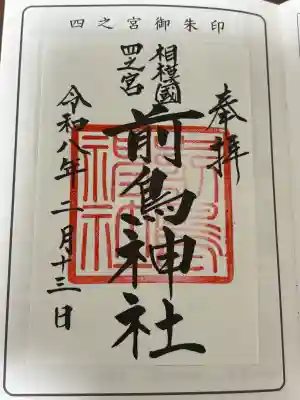 四之宮御朱印
奉拝
相模國
四之宮
前鳥神社
令和八年二月十三日
前鳥神社